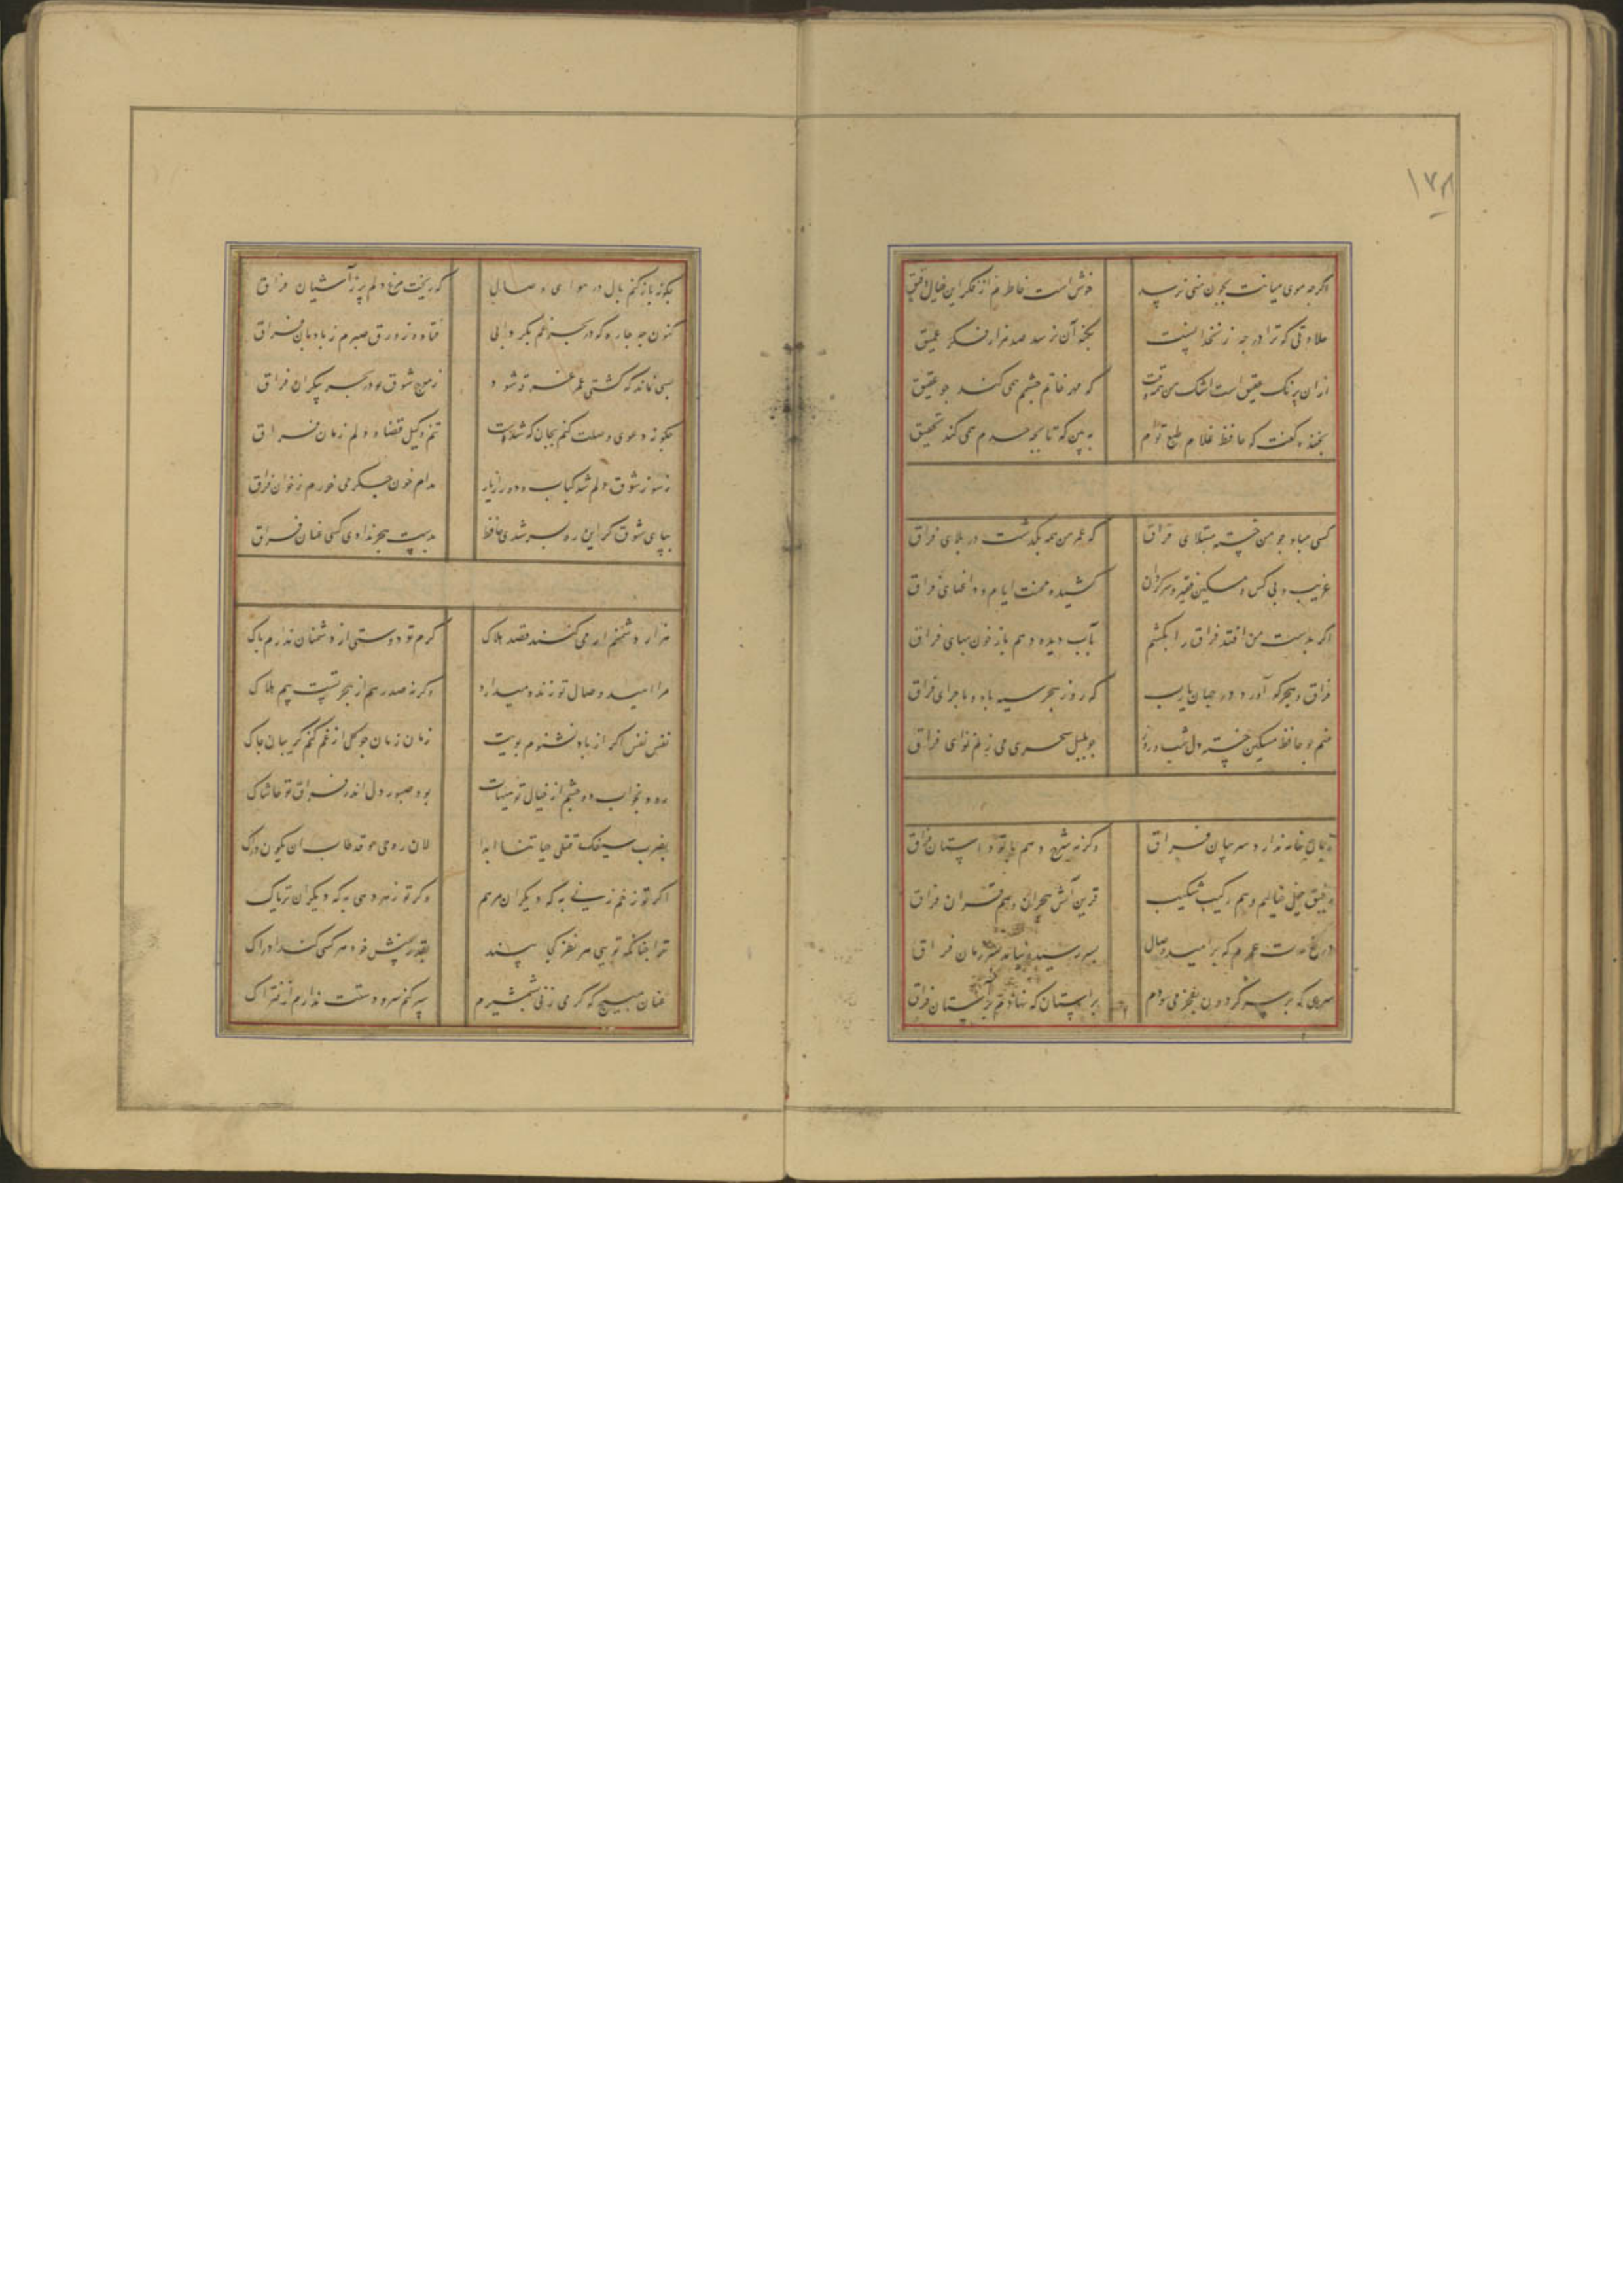 ۱۷۸
اگرچه موی میانت بچون منی نرسد خوش است خاطرم از فکر این خیال دقیق
حلاوتی که ترا در چه زنخدانست بکنه آن نرسد صد هزار فکر عمیق
ازان برنک عقیق است اشک من همه وقت که مهر خاتم چشمم همی کند جو عقیق
بخنده گفت که حافظ غلام طبع توام ببین که تا بچه حدم همی کند تحمیق
کسی مباد جو من خسته مبتلای فراق که عمر من همه بگذشت در بلای فراق
غریب و بی کس و مسکین فقیر و سرگردان کشیده محنت ایام و داغهای فراق
اگر بدست من افتد فراق را بکشم بآب دیده دهم باز خون بهای فراق
فراق و هجر که آورد در جهان یارب که روز هجر سیه باد و ماجرای فراق
منم جو حافظ مسکین خسته دل شب و روز جو بلبل سحری می زنم نوای فراق
زبان خامه ندارد سر بیان فراق وگرنه شرح دهم با تو داستان فراق
رفیق خیل خیالیم و هم رکیب شکیب قرین آتش هجران و هم قران فراق
دریغ مدت عمرم که بر امید وصال بسر رسید و نیامد بسر زمان فراق
سری که بر سر گردون بفخر می سودم براستان که نهادم بر آستان فراق
چگونه باز کنم بال در هوای وصال که ریخت مرغ دلم پر ز آشیان فراق
کنون چه چاره که در بحر غم بگردابی فتاده زورق صبرم ز بادبان فراق
بسی نماند که کشتی عمر غرقه شود ز موج شوق تو در بحر بیکران فراق
چگونه دعوی وصلت کنم بجان که شدست تنم وکیل قضا و دلم زمان فراق
ز سوز شوق دلم شد کباب و دور از یار مدام خون جگر می خورم ز خوان فراق
بپای شوق گر این ره بسر شدی حافظ بدست هجر ندادی کسی عنان فراق
هزار دشمنم ار می کنند قصد هلاک گرم تو دوستی از دشمنان ندارم باک
مرا امید وصال تو زنده میدارد وگرنه صد رهم از هجر تست بیم هلاک
نفس نفس اگر از باد نشنوم بویت زمان زمان جو گل از غم کنم گریبان چاک
رود بخواب دو چشم از خیال تو هیهات بود صبور دل اندر فراق تو حاشاک
بضرب سیفک قتلی حیاتنا ابدا لان روحی قد طاب ان یکون فداک
اگر تو زخم زنی به که دیگران مرهم وگر تو زهر دهی به که دیگران تریاک
ترا چنانکه تویی هر نظر کجا بیند بقدر بینش خود هر کسی کند ادراک
عنان مپیچ که گر می زنی بشمشیرم سپر کنم سر و دستت ندارم از فتراک